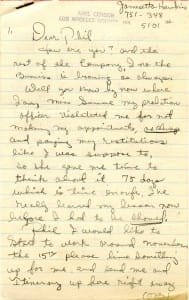 Jannetta Hawkins
MAIL CENSOR
LOS ANGELES
751-348
5101
1.
Dear Phil
How are you? and the
rest of the Company, I no the
Buniss is booming as always.
Well you know by now where
I am, Miss Greene my probtion
officer violated me for not
making my appointments,
and paying my restitutions
like I was suppose to,
So she gave me time to
think about it 75 days
which is time enough, I've
really learned my lesson now
before I had to be showed!
Phil I would like to
start to work around November
the 15th please line something
up for me, and send me and
Itinerary up here right away
(over)